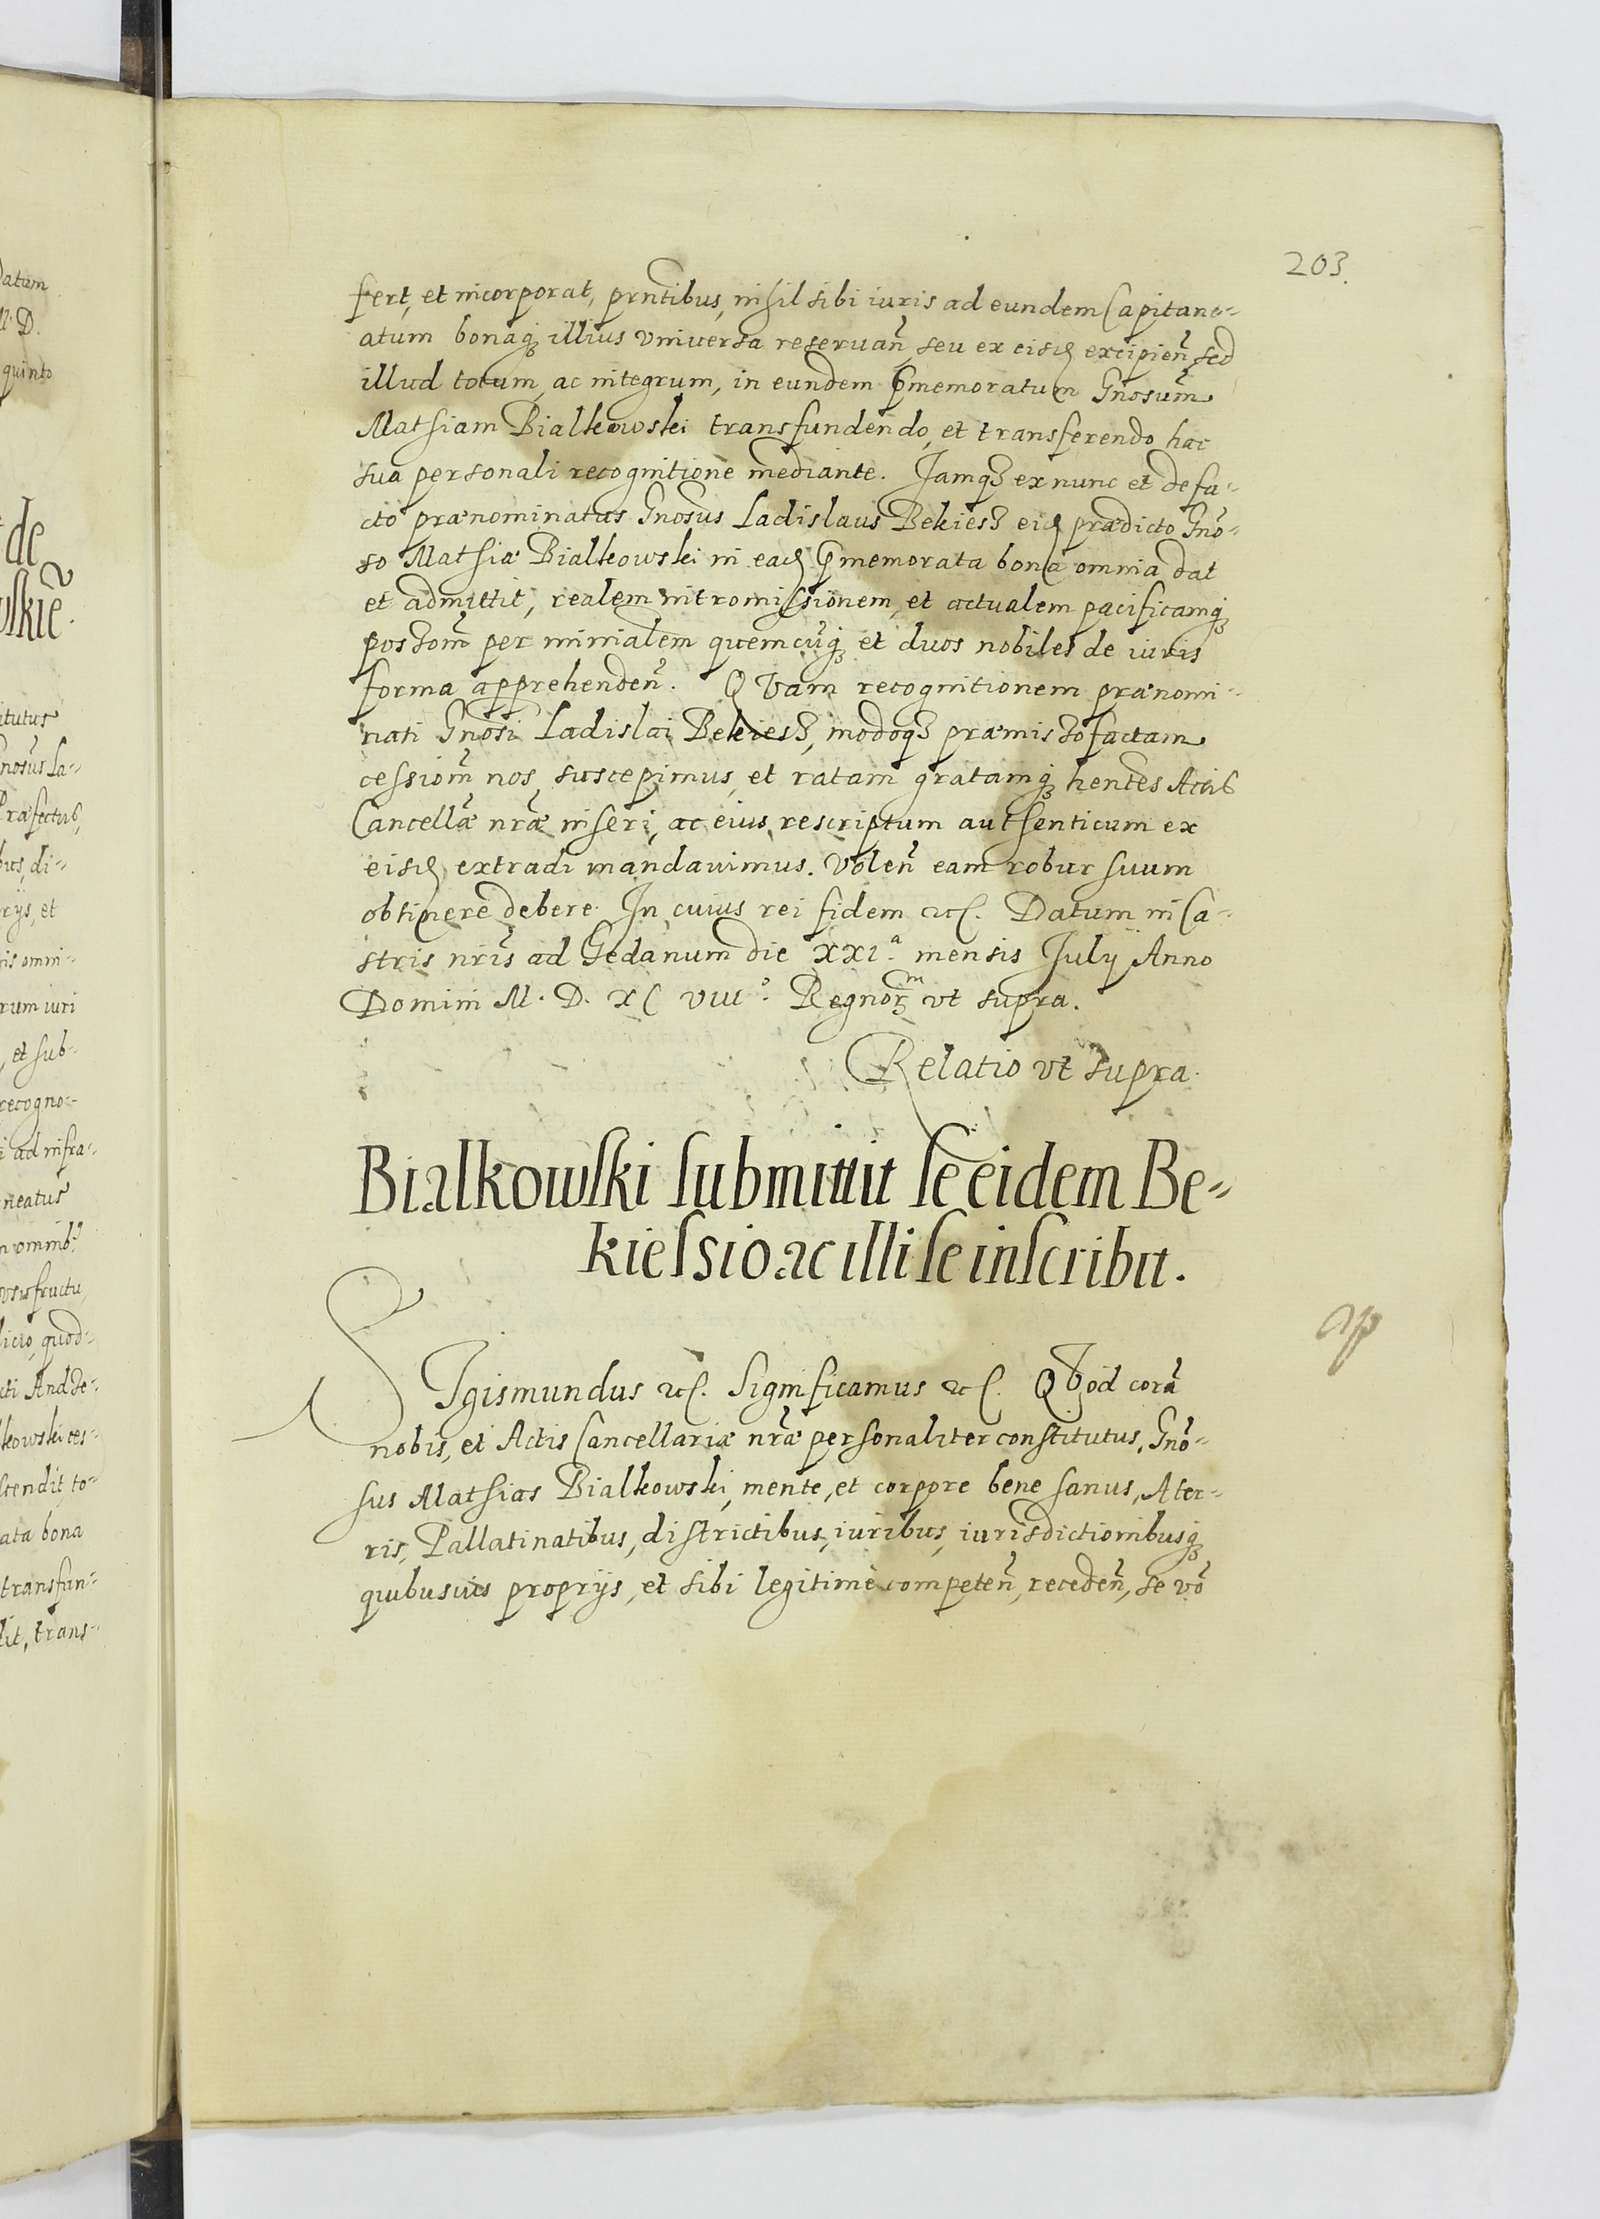 203.
fert, et incorporat, prntibus, nihil sibi iuris ad eundem Capitane-
atum bonaq₃ illius vniuersa reseruañ, seu ex eisd excipieñ, sed
illud totum, ac integrum, in eundem p̄memoratum Gnosum̃
Mathiam Bialkowski transfundendo, et transferendo hac
sua personali recognitione mediante. Jamq₃ ex nunc et de fa-
cto prænominatus Gnosus Ladislaus Bekiess eid prædicto Gño-
so Mathiæ Bialkowski in ead p̄memorata bona omnia dat
et admittit, realem intromissionem, et actualem pacificamq₃
possom̃ per minialem quemcũq₃ et duos nobiles de iuris
forma apprehendeñ. QVam recognitionem prænomi-
nati Gnosi Ladislai Bekiess, modoq₃ præmisso factam
cessiom̃ nos, suscepimus, et ratam gratamq₃ hentes Actis
Cancellæ̃ nræ̃ inseri, ac eius rescriptum authenticum ex
eisd extradi mandauimus. Voleñ eam robur suum
obtinere debere. In cuius rei fidem etc. Datum in Ca-
stris nris̃ ad Gedanum die XXIª. mensis July Anno
Domini M. D. XC VIIIº. Regnorᵐ vt supra.
Relatio vt supra.
Bialkowski submittit se eidem Be-
kiessio ac illi se inscribit.
SIgismundus etc. Significamus etc. QVod corã
nobis, et Actis Cancellariæ nræ personaliter constitutus, Gño-
sus Mathias Bialkowski, mente, et corpore bene sanus, A ter-
ris, Pallatinatibus, districtibus, iuribus, iurisdictionibusq₃
quibusuis proprijs, et sibi legitimè competeñ, recedeñ, se vo᷉